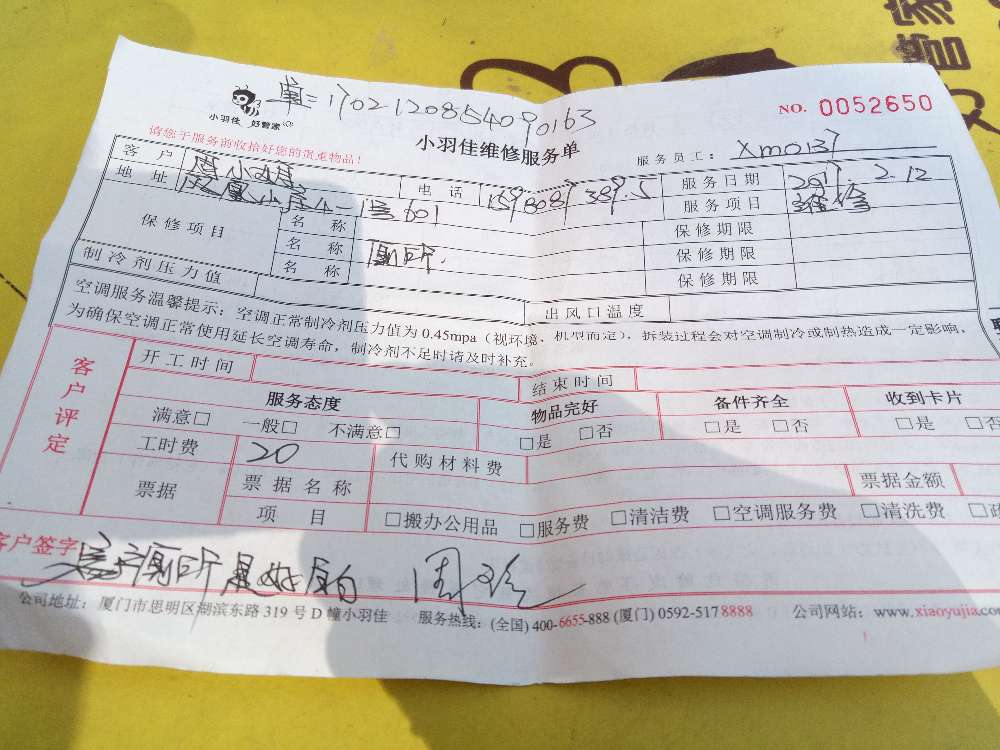 管家
小羽佳 好管家
单=1702120854090163
NO. 0052650
请您于服务前收拾好您的贵重物品!
小羽佳维修服务单
服务员工: Xm0137
客户
电话
服务日期 2017.2.12
地址 4-1号601
服务项目 维修
保修项目 名称 保修期限
名称 厕所. 保修期限
名称 保修期限
制冷剂压力值 出风口温度
空调服务温馨提示:空调正常制冷剂压力值为0.45mpa(视环境、机型而定),拆装过程会对空调制冷或制热造成一定影响,
为确保空调正常使用延长空调寿命,制冷剂不足时请及时补充。
客户评定
开工时间 结束时间
服务态度 物品完好 备件齐全 收到卡片
满意□ 一般□ 不满意□ □是 □否 □是 □否 □是 □否
工时费 20 代购材料费
票据 票据名称 票据金额
项目 □搬办公用品 □服务费 □清洁费 □空调服务费 □清洗费
客户签字 客户厕所是好的 周珍
公司地址:厦门市思明区湖滨东路319号D幢小羽佳 服务热线:(全国)400-6655-888 (厦门)0592-5178888 公司网站:www.xiaoyujia.com